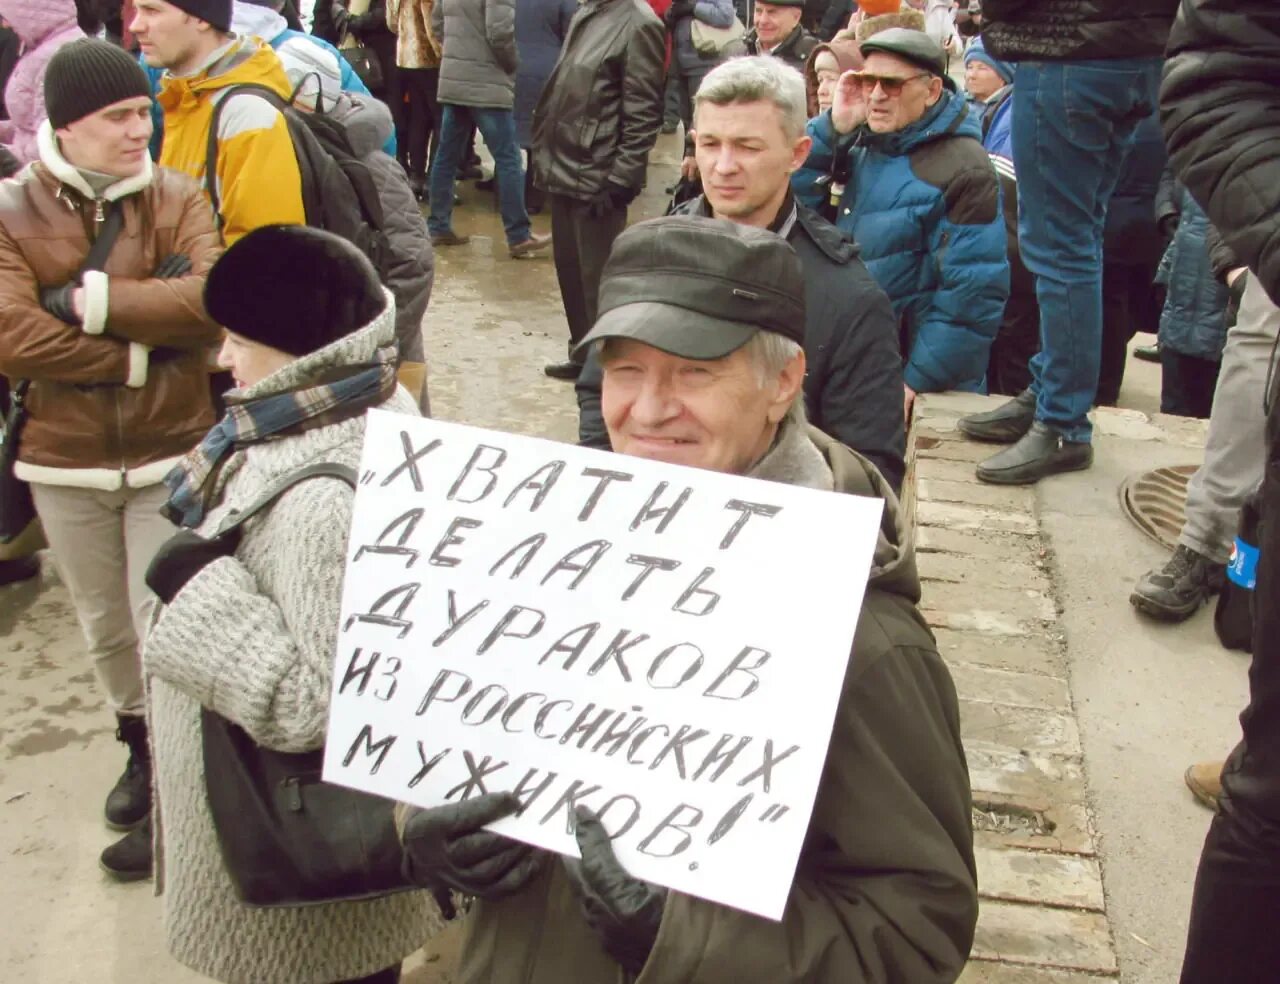 „ХВАТИТ
ДЕЛАТЬ
ДУРАКОВ
ИЗ РОССИЙСКИХ
МУЖИКОВ!"
pepsi